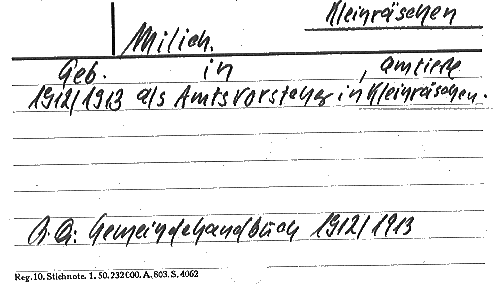 Kleinräschen
Milich.
Geb. in , amtierte
1912/1913 als Amtsvorsteher in Kleinräschen.
B.Q: Gemeindehandbuch 1912/1913
Reg. 10. Stichnote. 1. 50. 232000. A. 803. S. 4062